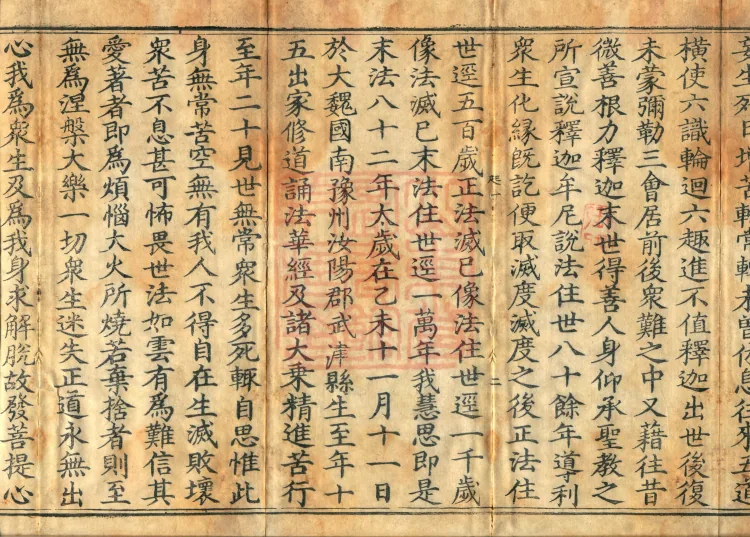 生死苦輪常轉未曾休息往來五道
橫使六識輪迴六趣進不值釋迦出世後復
未蒙彌勒三會居前後衆難之中又藉往昔
微善根力釋迦末世得善人身仰承聖教之
所宣說釋迦牟尼說法住世八十餘年導利
衆生化緣旣訖便取滅度滅度之後正法住
世逕五百歲正法滅已像法住世逕一千歲
像法滅已末法住世逕一萬年我慧思即是
末法八十二年大歲在乙未十一月十一日
於大魏國南豫州汝陽郡武津縣生至年十
五出家修道誦法華經及諸大乘精進苦行
至年二十見世無常衆生多死輒自思惟此
身無常苦空無有我人不得自在生滅敗壞
衆苦不息甚可怖畏世法如雲有爲難信其
愛著者即爲煩惱大火所燒若棄捨者則至
無爲涅槃大樂一切衆生迷失正道永無出
心我爲衆生及爲我身求解脫故發菩提心